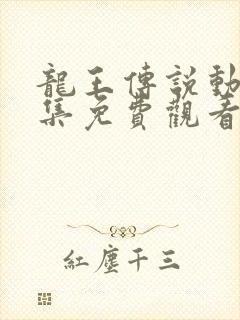 龍王傳說動
集免費觀看
紅塵千三